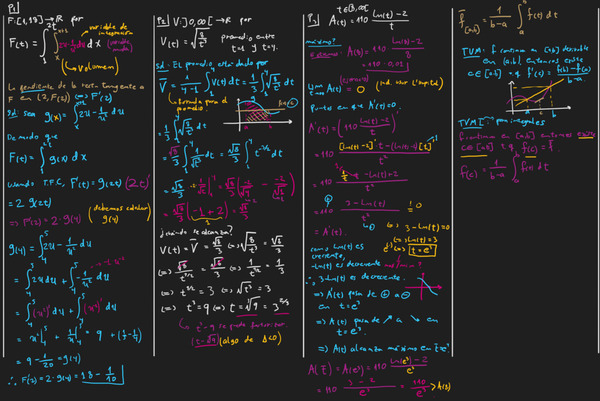 P1
F: [1,19] → ℝ por
F(t) = ∫ ∫ dx
variable de integración
(→ volumen)
La pendiente de la recta tangente a
F en (2, F(2)) ⇔ F'(2)
sea g(x) = ∫ 2u - 1/u² du
De modo que
F(t) = ∫ g(x) dx
usando T.F.C, F'(t) = g(2t) (2t)'
= 2 g(2t)
⇒ F'(2) = 2·g(4) (debemos calcular g(4))
g(4) = ∫₄⁵ 2u - 1/u² du
= ∫₄⁵ 2u du + ∫₄⁵ -1/u² du
= ∫₄⁵ (u²)' du + ∫₄⁵ (u⁻¹)' du
= u²|₄⁵ + 1/u|₄⁵ = 9 + (1/5 - 1/4)
= 9 - 1/20 = g(4)
∴ F'(2) = 2·g(4) = 18 - 1/10
P2 V: ]0,∞[ → ℝ por
V(t) = √(8/t³) promedio entre
t=1 y t=4.
sol: El promedio está dado por
V̄ = 1/(4-1) ∫₁⁴ V(t) dt = 1/3 ∫₁⁴ √(8/t³) dt
↳ fórmula para el promedio.
= 1/3 ∫₁⁴ √(8/t³) dt
= √8/3 ∫₁⁴ √(1/t³) dt = √8/3 ∫₁⁴ t^(-3/2) dt
= √8/3 (-1+2) = √8/3
¿cuándo se alcanza?
V(t) = V̄ = √8/3 ⇔ √(8/t³) = √8/3
⇔ √8/t^(3/2) = √8/3 ⇔ 1/t^(3/2) = 1/3
⇔ t^(3/2) = 3 ⇔ √t³ = 3
⇔ t³ = 9 ⇔ t = ∛9 = 3^(2/3)
↳ t³ - 9 se puede factorizar
(t - ∛9)(algo de Δ<0)
P3 t ∈ [8,∞[
A(t) = 110 (ln(t) - 2)/t
máximo?
A(8) = 110 (ln(8) - 2)/8
lim A(t) = 0 (ind. usar L'Hopital)
Puntos en que A'(t) = 0.
A'(t) = (110 (ln(t) - 2)/t)'
= 110 ([ln(t)-2]' t - (ln(t)-2)[t]')/t²
= 110 (1/t · t - ln(t) + 2)/t²
= 110 (3 - ln(t))/t² = 0
= A'(t). ↳ ⇔ 3 - ln(t) = 0
⇔ ln(t) = 3
⇔ t = e³
como ln(t) es creciente,
-ln(t) es decreciente
∴ 3 - ln(t) es decreciente.
⇒ A'(t) pasa de ⊕ a ⊖
en t = e³
⇒ A(t) pasa de ↗ a ↘ en
t = e³.
⇒ A(t) alcanza máximo en t = e³
A(t̄) = A(e³) = 110 (ln(e³) - 2)/e³
= 110 (3 - 2)/e³ = 110/e³ > A(8)
f̄[a,b] = 1/(b-a) ∫ₐᵇ f(t) dt
TVM: f continua en [a,b] derivable
en (a,b) entonces existe
c ∈ (a,b) t.q. f'(c) = (f(b) - f(a))/(b-a)
TVMI: para integrales
f continua en [a,b] entonces existe
c ∈ [a,b] t.q. f(c) = f̄.
f(c) = 1/(b-a) ∫ₐᵇ f(t) dt